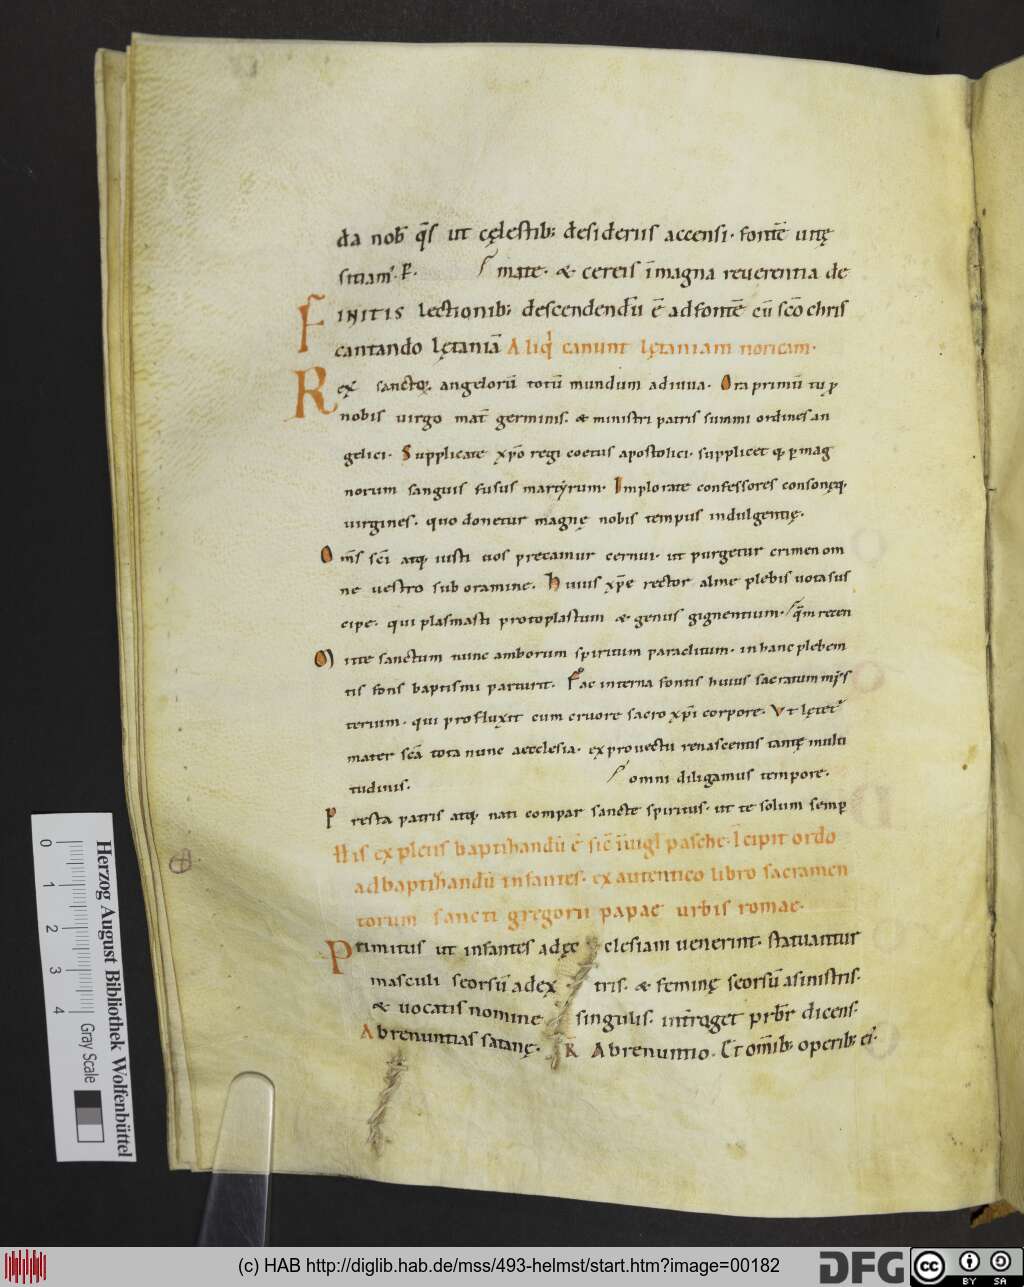 da nob̄ q̄s ut cęlestib; desideriis accensi. fontē uitę
sitiam᷒. P̄.
mate. & cereis īmagna reuerentia de
FINITIS lectionib; descendendū ē adfontē cū sc̄o chris
cantando lętaniā Aliq̇ canunt lętaniam noricam.
Rex sanctoꝝ angelorū totū mundum adiuua. Ora primū tu ꝓ
nobis uirgo mat̄ germinis. & ministri patris summi ordines an
gelici. Supplicate xp̄o regi coetus apostolici. supplicet q; ꝑmag
norum sanguis fusus martyrum. Implorate confessores consonęq;
uirgines. quo donetur magnę nobis tempus indulgentię.
Om̄s sc̄i atq; iusti uos precamur cernui. ut purgetur crimen om
ne uestro sub oramine. Huius xp̄e rector alme plebis uota sus
cipe. qui plasmasti protoplastum & genus gignentium. q̄m recen
Mitte sanctum nunc amborum spiritum paraclitum. in hanc plebem
tis fons baptismi parturit. Fac interna fontis huius sacratum mẏs
terium. qui profluxit cum cruore sacro xp̄i corpore. Vt lętet᷒
mater sc̄a tota nunc aecclesia. ex prouectu renascentis tantę multi
tudinis.
omni diligamus tempore.
Presta patris atq; nati compar sancte spiritus. ut te solum semꝑ
His expletis baptizandū ē sic̄ īuigl̄ pasche. Īcipit ordo
ad baptizandū infantes. ex autentico libro sacramen
torum sancti gregorii papae urbis romae.
Primitus ut infantes ad ęc elesiam uenerint. statuantur
masculi seorsū adex tris. & feminę seorsū asinistris.
& uocatis nomine singulis. intr̄oget prb̄r dicens.
Abrenuntias satanę. R̄ Abrenuntio. Et om̄ib; operib; ei᷒.
0 1 2 3 4
Herzog August Bibliothek Wolfenbüttel
Gray Scale
(c) HAB http://diglib.hab.de/mss/493-helmst/start.htm?image=00182
DFG
cc BY SA